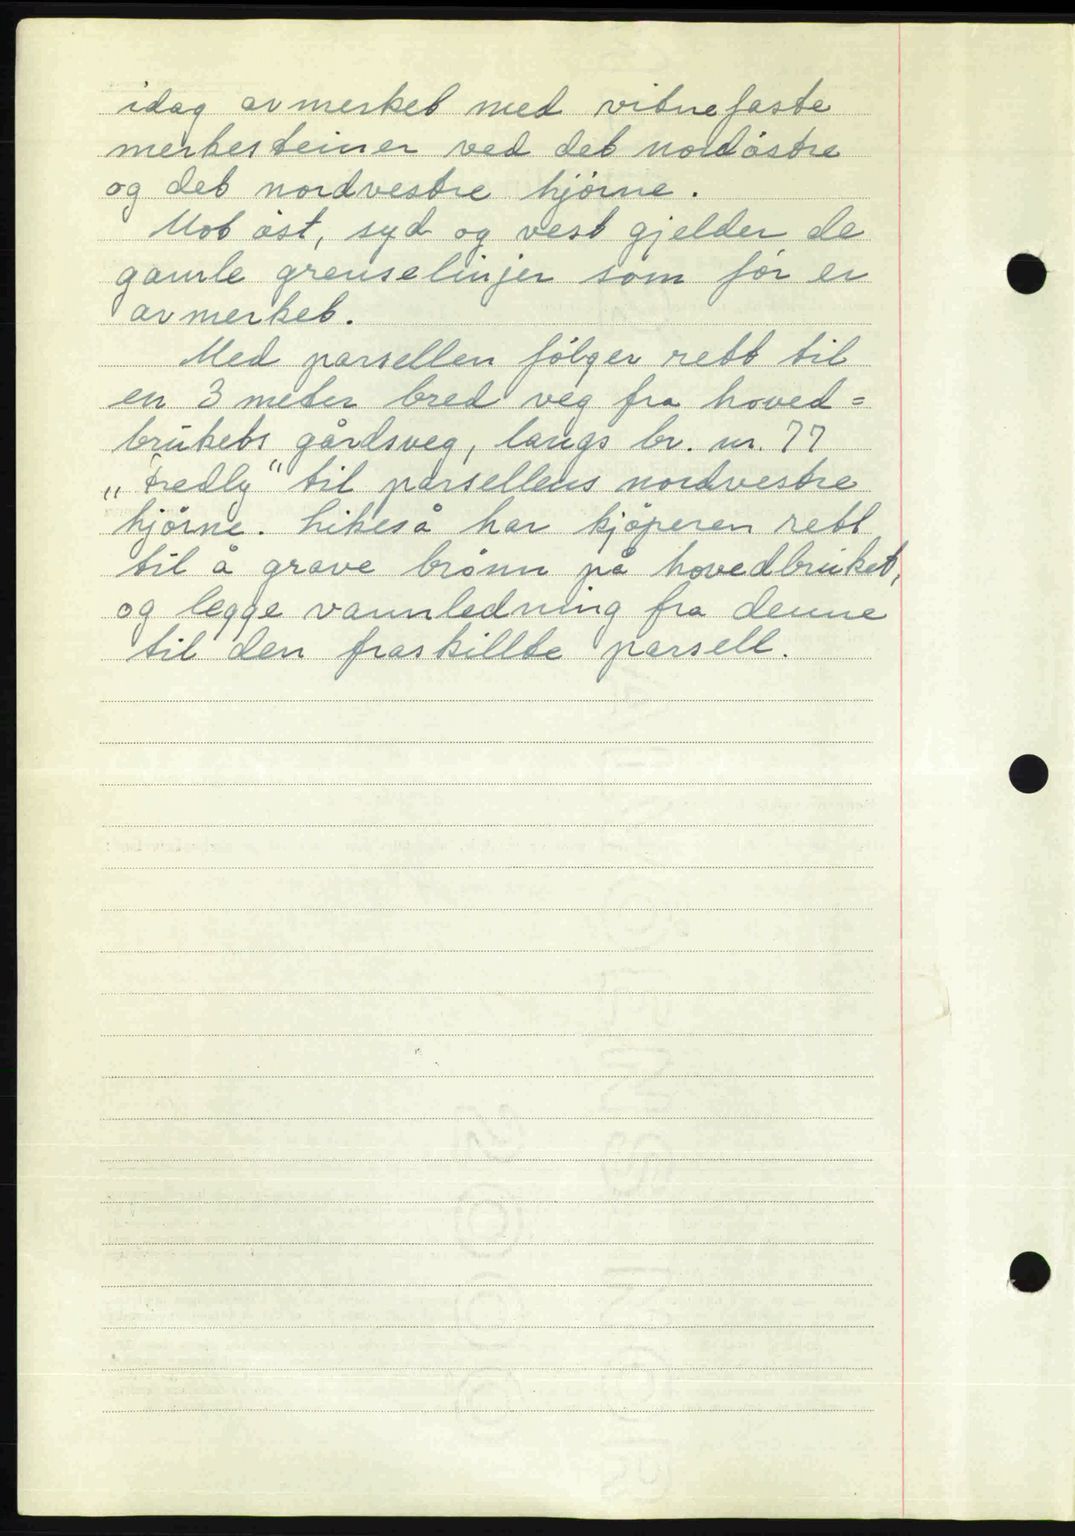 idag avmerket med vitnefaste
merkesteiner ved det nordöstre
og det nordvestre hjörne.
Mot öst, syd og vest gjelder de
gamle grenselinjer som för er
avmerket.
Med parsellen fölger rett til
en 3 meter bred veg fra hoved=
brukets gårdsveg, langs br. nr. 77
„Fredly" til parsellens nordvestre
hjörne. Likeså har kjöperen rett
til å grave brönn på hovedbruket,
og legge vannledning fra denne
til den fraskillte parsell.